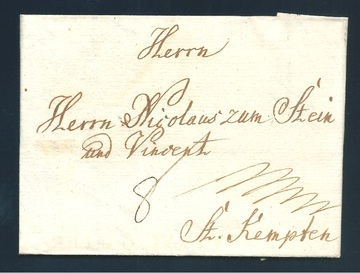 Herrn
Herrn Nicolaus zum Stein
und Vincent
8
St. Kempten